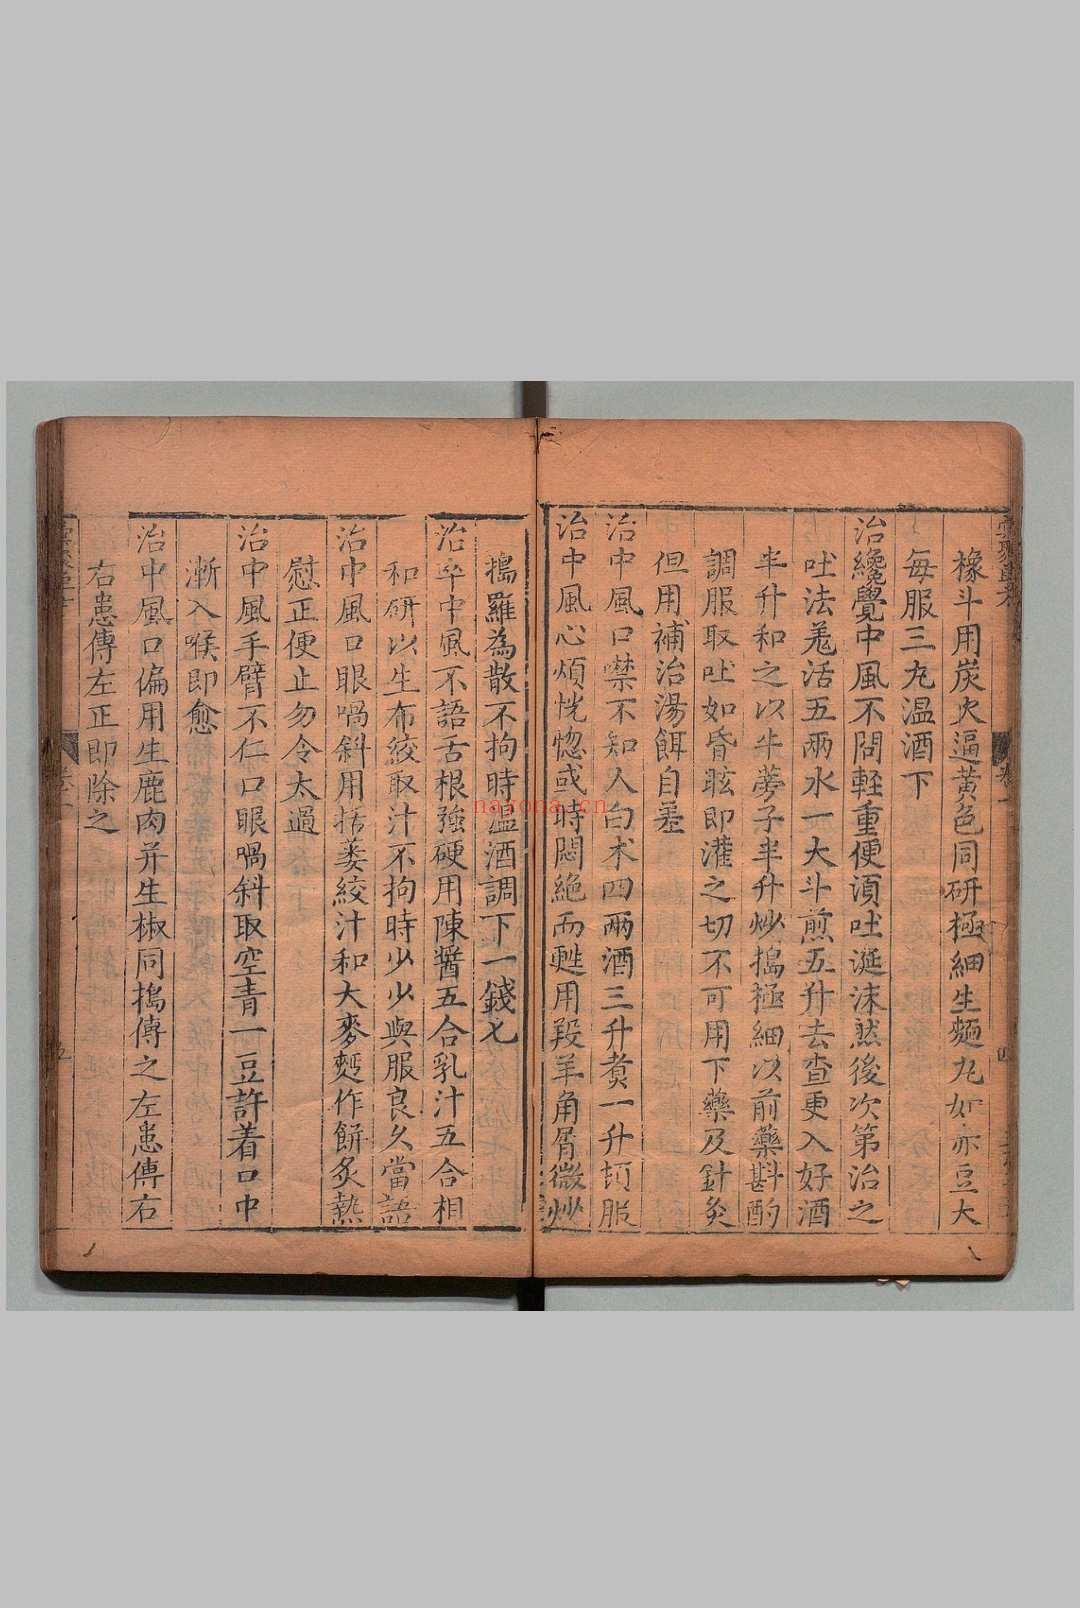 橡斗用炭火逼黃色同研極細生麵丸如亦豆大
每服三丸溫酒下
治纔覺中風不問輕重便湏吐涎沫然後次第治之
吐法羗活五兩水一大斗煎五升去查更入好酒
半升和之以牛蒡子半升炒搗極細以前藥斟酌
調服取吐如昏眩即灌之切不可用下藥及針灸
但用補治湯餌自差
治中風口噤不知人白术四兩酒三升煑一升頓服
治中風心煩恍惚或時悶絕而甦用羖羊角屑微炒
搗羅為散不拘時温酒調下一錢七
治卒中風不語舌根強硬用陳醬五合乳汁五合相
和研以生布絞取汁不拘時少少與服良久當語
治中風口眼喎斜用括蔞絞汁和大麥麫作餅炙熱
慰正便止勿令太過
治中風手臂不仁口眼喎斜取空青一豆許着口中
漸入喉即愈
治中風口偏用生鹿肉并生椒同搗傅之左患傅右
右患傅左正即除之
nayona.cn